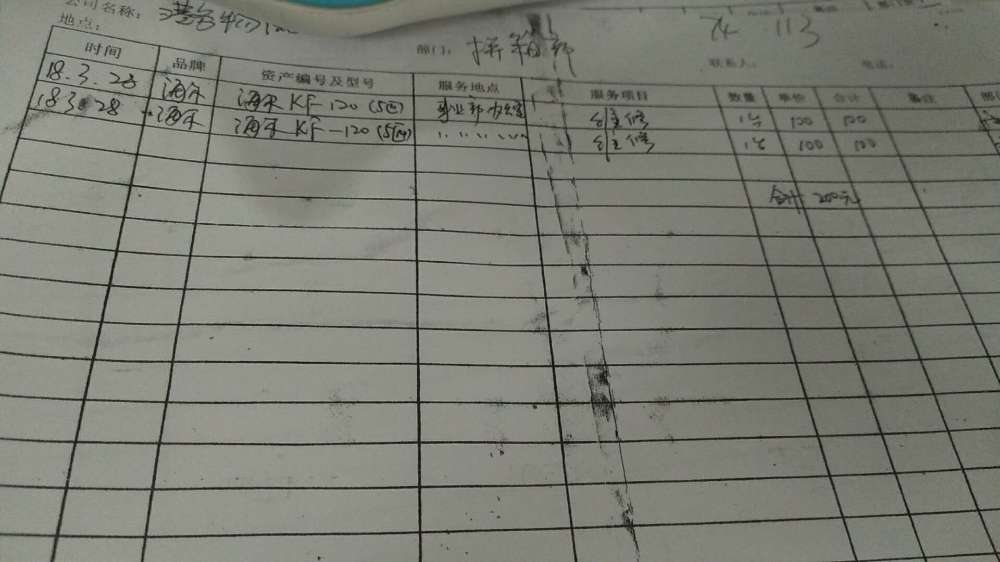 公司名称:
地点:
部门: 拼箱部
联系人: 电话:
时间 品牌 资产编号及型号 服务地点 服务项目 数量 单价 合计 备注
18.3.28 海尔 海尔 KF-120 (5匹) 事业部办公室 维修 1台 100 100
18.3.28 海尔 海尔 KF-120 (5匹) 〃 〃 〃 〃 〃 维修 1台 100 100
合计 200元